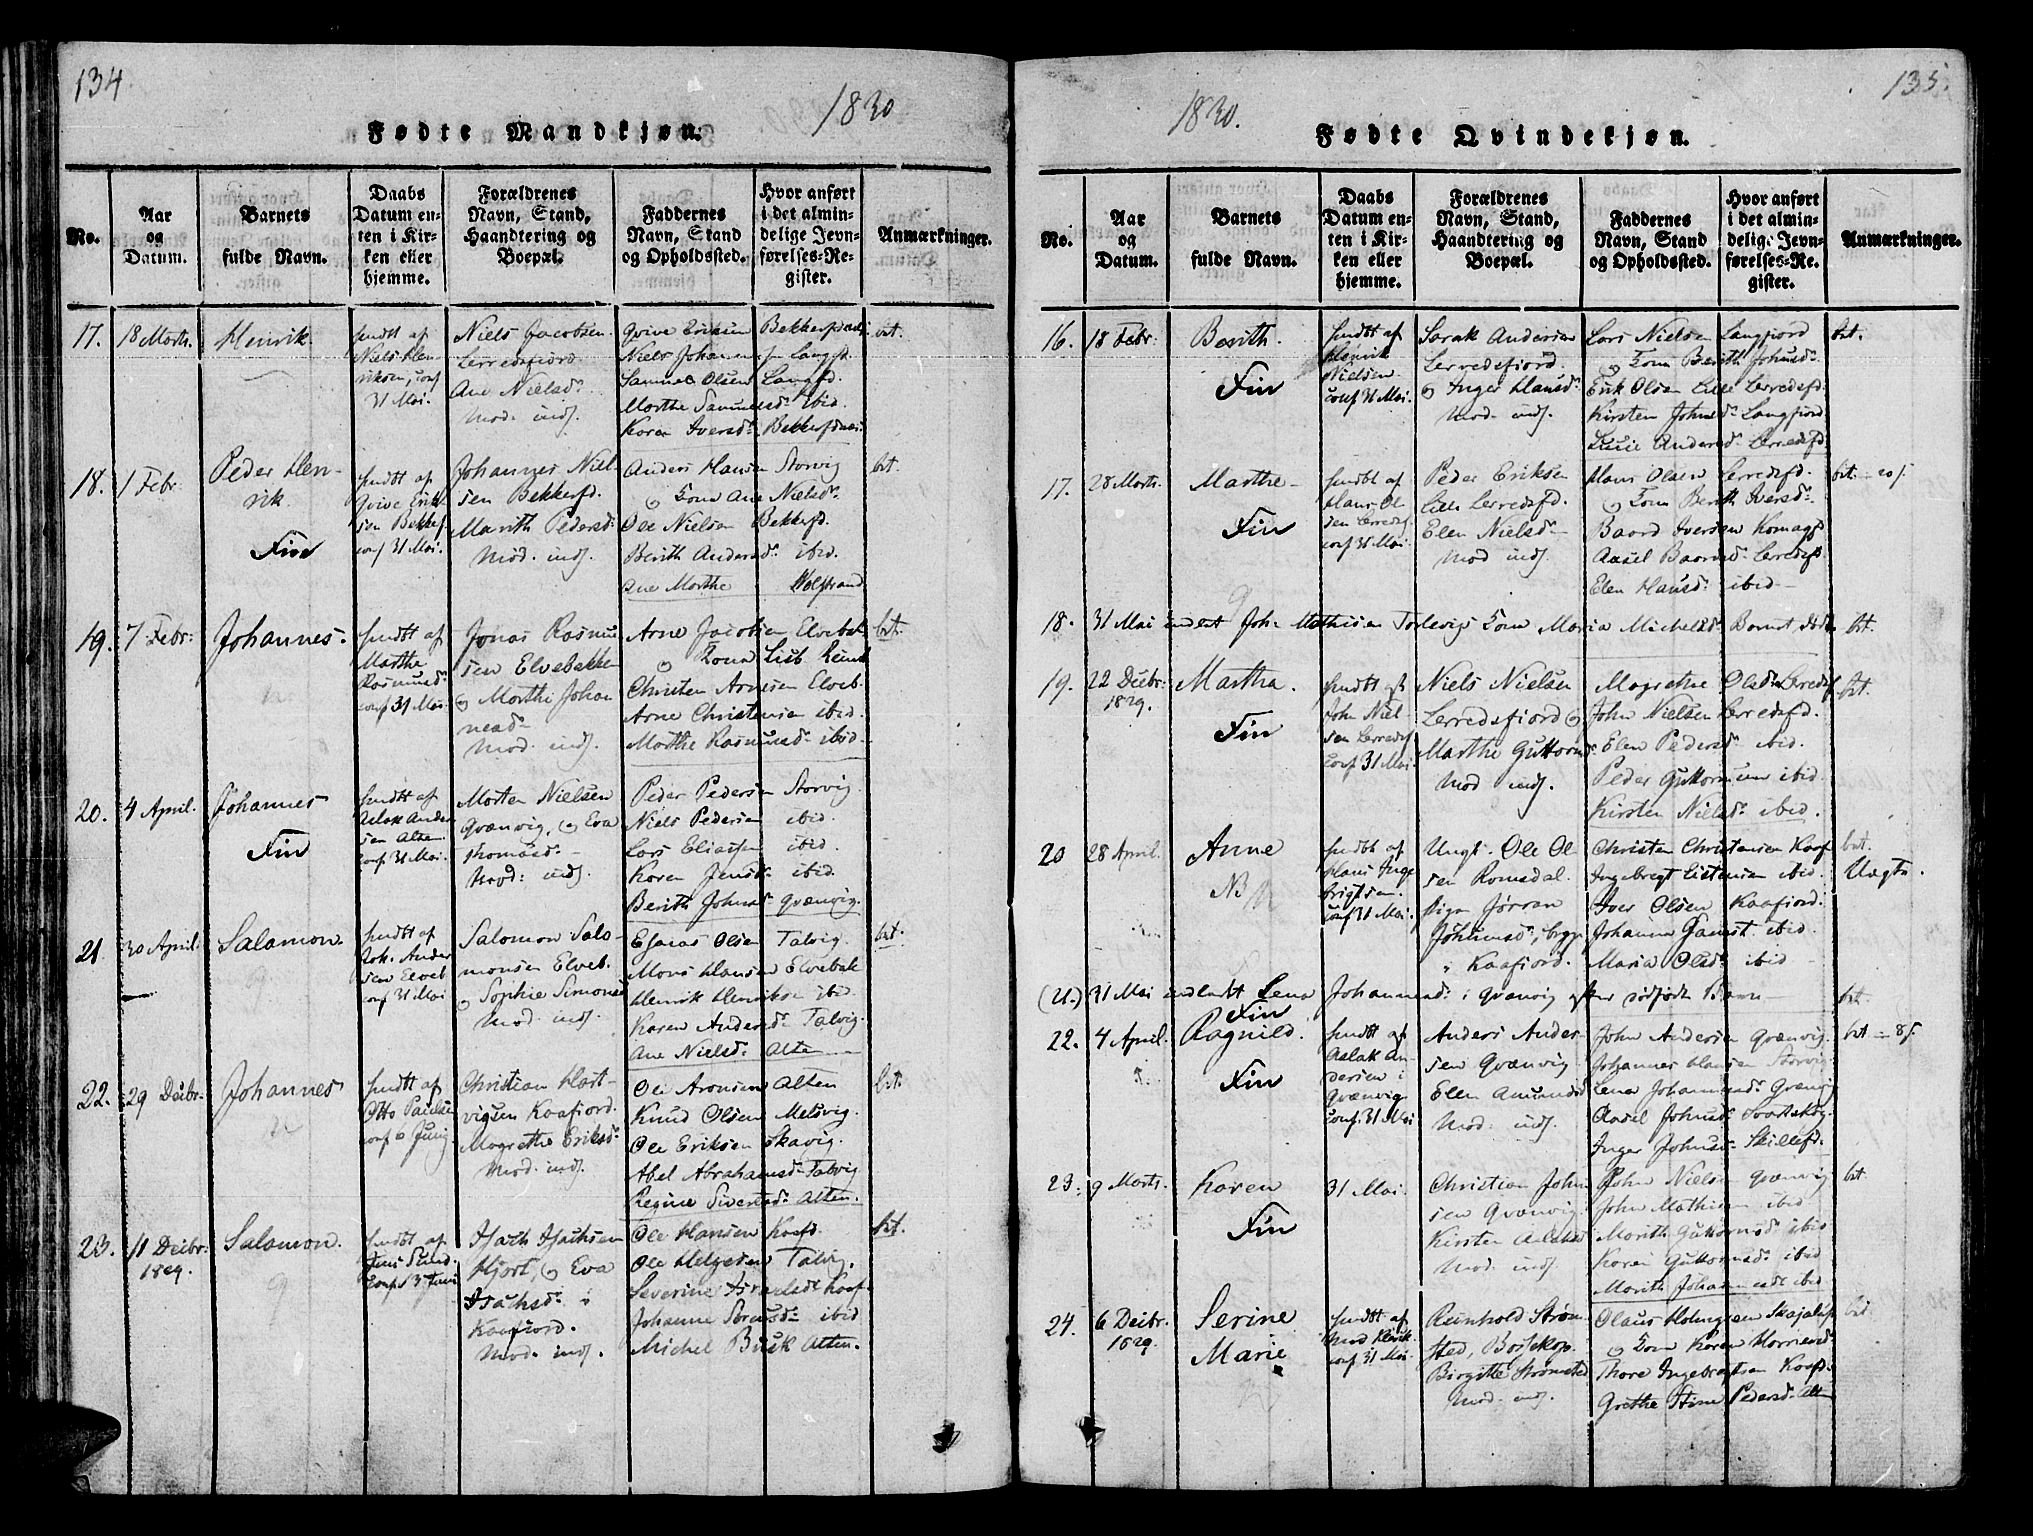 134.
1830
Fødte Mandkjøn.
No.
Aar og Datum.
Barnets fulde Navn.
Daabs Datum enten i Kirken eller hjemme.
Forældrenes Navn, Stand, Haandtering og Boepæl.
Faddernes Navn, Stand og Opholdssted.
Hvor anført i det almindelige Jevnførelses-Register.
Anmærkninger.
17. 18 Marts. Henrik.
hmdt af Niels Henriksen, conf 31 Mai.
Niels Jacobsen Lerredsfiord
Ane Nielsd:
Mod. indf.
Qvive Ericsen Bekkerfd
Niels Johansen Langfd.
Sammel Olsen Langfd.
Marthe Samuelsd: ibid.
Karen Iversd: Bekkerfd
brt.
18. 1 Febr. Peder Henrik.
Fin
hmdt af Qvive Eriksen Bekkerf. conf 31 Mai.
Johannes Nielsen Bekkerfd.
Marith Pedersd:
Mod. indf.
Anders Hansen Storvig
Kona Ane Nielsd:
Ole Nielsen Bekkerfd.
Berith Andersd: ibid.
Ane Marthe Wolfstrand
brt.
19. 7 Febr: Johannes.
hmdt af Marthe Rasmusd: conf 31 Mai.
Jonas Rasmussen Elvebakken
Marthe Johannesd:
Mod. indf.
Arne Jacobsen Elvebak
Kona Lisb
Christen Arnesen Elveb.
Arne Christensen ibid.
Marthe Rasmusd: ibid
brt.
20. 4 April. Johannes
Fin
hmdt af Aslak Andersen Alten conf 31 Mai.
Morten Nielsen Qvænvig, Eva Thomasd:
Mod: indf.
Peder Pedersen Storvig.
Niels Pedersen ibid.
Lars Eliassen ibid.
Karen Jensd: ibid
Berith Johnsd: Qvænvig.
21 30 April: Salamon.
hmdt af Joh. Andersen Elveb conf 31 Mai
Salomon Salomonsen Elveb.
Sophie Simonsd
Mod. indf.
Esaias Olsen Talvig.
Mons Hansen Elvebak
Henrik Henriksen ibid.
Karen Andersd: Talvig.
Ane Nielsd: Alten
brt.
22. 29 Decbr. Johannes
hmdt af Otto Paulsen conf 6 Juny.
Christian Hartvigsen Kaafiord.
Magrethe Eriksd:
Mod. indf.
Ole Aronsen Alten
Knud Olsen Melsvig.
Ole Eriksen Skavig.
Abel Abrahamsd: Talvig
Regine Sivertsd: Alten.
brt.
23. 11 Decbr: 1829. Salamon.
hmdt af Jens Lund conf 13 Juni
Isach Isachsen Hjort, Eva Isachsd: i Kaafiord.
Mod. indf.
Ole Hansen Kaafd.
Ole Helgesen Talvig.
Severine Israelsd: Kaaf.
Johanne ibid
Michel Busk Alten.
brt.
135.
1830.
Fødte Qvindekjøn.
No.
Aar og Datum.
Barnets fulde Navn.
Daabs Datum enten i Kirken eller hjemme.
Forældrenes Navn, Stand, Haandtering og Boepæl.
Faddernes Navn, Stand og Opholdssted.
Hvor anført i det almindelige Jevnførelses-Register.
Anmærkninger.
16. 18 Febr. Berith
Fin
hmdt af Henrik Nielsen conf 31 Mai.
Sarak Andersen Lerredsfiord
Inger Hansd:
Mod. indf.
Lars Nielsen Langfiord
Kona Berith Johnsd:
Erik Olsen Lille Lerredsfd.
Kirsten Johnsd: Langfiord
Andersd: Lerredsfd
brt.
17. 28 Marts. Marthe
Fin
hmdt af Hans Olsen Lerredsf. conf 31 Mai.
Peder Eriksen Lille Lerredsfd.
Elen Nielsd
Mod indf.
Hans Olsen Lerredsfd.
Kona Berith Iversd:
Baard Iversen Komagfd
Aasel Baarsd: Lerredsfd
Elen Hansd: ibid
brt. 20 ſ.
18. 31 Mai Joh. Mathisen Torlevigs Kona Maria Michelsd: Barnet døbt brt.
19. 22 Decbr: 1829. Martha.
Fin
hmdt af John Nielsen Lerredsf conf 31 Mai
Niels Nielsen Lerredsfiord
Marthe Guttormsd
Mod indf.
Magrethe Olsd: Lerredsf
John Nielsen Lerredsfd.
Elen Pedersd: ibid.
Peder Guttormsen ibid.
Kirsten Nielsd: ibid.
brt.
20 28 April. Anne
NB
hmdt af Hans Ingebrigtsen conf 31 Mai.
Ungk. Ole Olsen Romsdal.
Pigen Jørran Johansd:, begge i Kaafiord.
Christen Christensen Kaaf
Ingebregt ibid.
Iver Olsen Kaafiord.
Johanna ibid.
Maria Olsd: ibid
brt.
Uægte.
(21.) 31 Mai indledt Lena Johannesd: i Qvænvig efter dødfødt Barn brt.
Fin
22. 4 April. Ragnild.
Fin
hmdt af Aslak Andersen i Qvænvig conf. 31 Mai
Anders Andersen Qvænvig
Elen Amundsd
Mod. indf.
John Andersen Qvænvig.
Johannes Hansen Storvig
Lena Johannesd: Qvænvig
Aasel Johnsd:
Inger Johnsd: Skillefd.
brt 8 ſ.
23. 9 Marts. Karen
Fin
31 Mai.
Christian Johnsen Qvænvig.
Kirsten Aslaksd
Mod. indf.
John Nielsen Qvænvig
John Mathisen ibid
Marith Guttormsd: ibid
Karen Guttormsd: ibid
Marith Johannesd: ibid
brt.
24. 6 Decbr. 1829. Serine Marie
hmdt af conf 31 Mai.
Reinhold Strømsted, Bossekop.
Birgitte Strømsted
Mod. indf.
Olaus Holmgreen
Kona Karen
Thore Ingebregtsen Kaafd.
Grethe Stine Pedersd: Alten